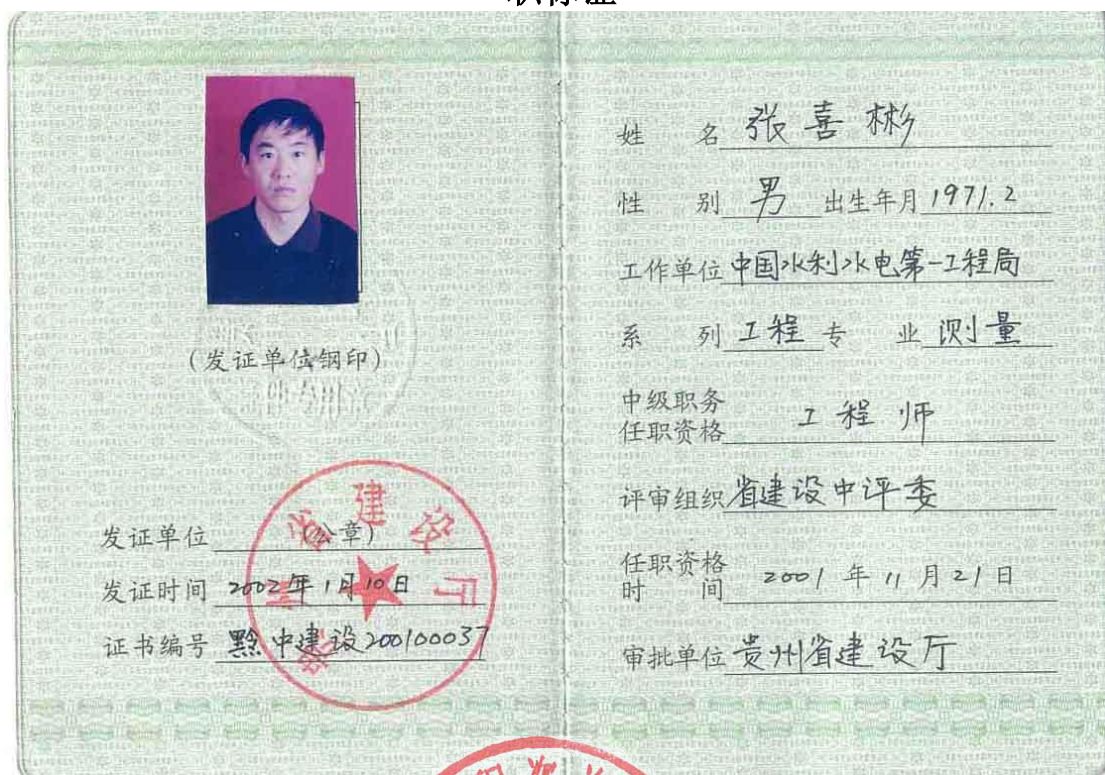 职称证
(发证单位钢印)
发证单位 (公章)
发证时间 2002年1月10日
证书编号 黔中建设200100037
省建设厅
姓 名 张喜彬
性 别 男 出生年月 1971.2
工作单位 中国水利水电第一工程局
系 列 工程 专 业 测量
中级职务
任职资格 工程师
评审组织 省建设中评委
任职资格
时 间 2001年11月21日
审批单位 贵州省建设厅